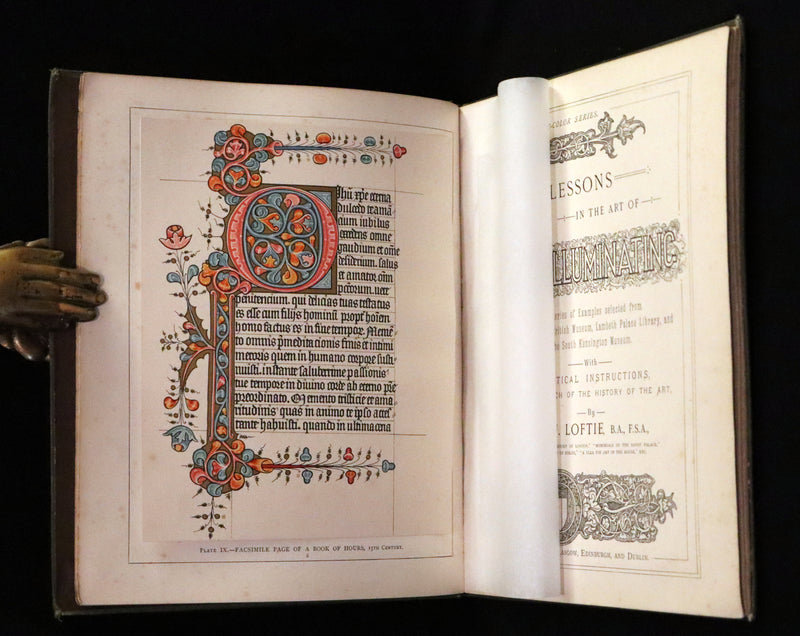 Jhu xpe eterna
dulcedo te ama
cium iubilus
excedens omne
gaudium et ome
desiderium. salus
et amator. om
pctorum. uere
penitencium. qui delicias tuas testatus
es esse cum filijs hominu propt hoiem
homo factus es in fine tempor. Meme
to omnis pmeditacionis finis et intimi
meroris quem in humano corpore susti
nuisti. instante saluterrime passionis
tue tempore in diuino corde ab eterno pre
preordinato. Memento tristicie et ama
ritudinis quas in animo te ipso attes
tante habuisti. quando in ultima cena
PLATE IX.—FACSIMILE PAGE OF A BOOK OF HOURS, 15TH CENTURY.
-COLOR SERIES.
LESSONS
IN THE ART OF
ILLUMINATING
eries of Examples selected from
British Museum, Lambeth Palace Library, and
the South Kensington Museum.
With
TICAL INSTRUCTIONS,
CH OF THE HISTORY OF THE ART,
By
LOFTIE, B.A., F.S.A.,
GLASGOW, EDINBURGH, AND DUBLIN.